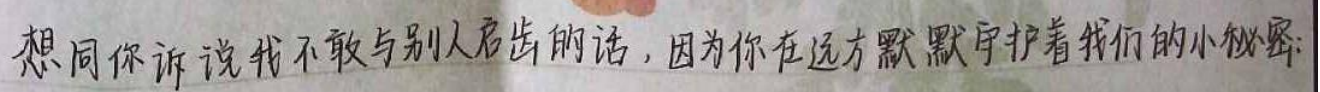 想同你诉说我不敢与别人启齿的话，因为你在远方默默守护着我们的小秘密：